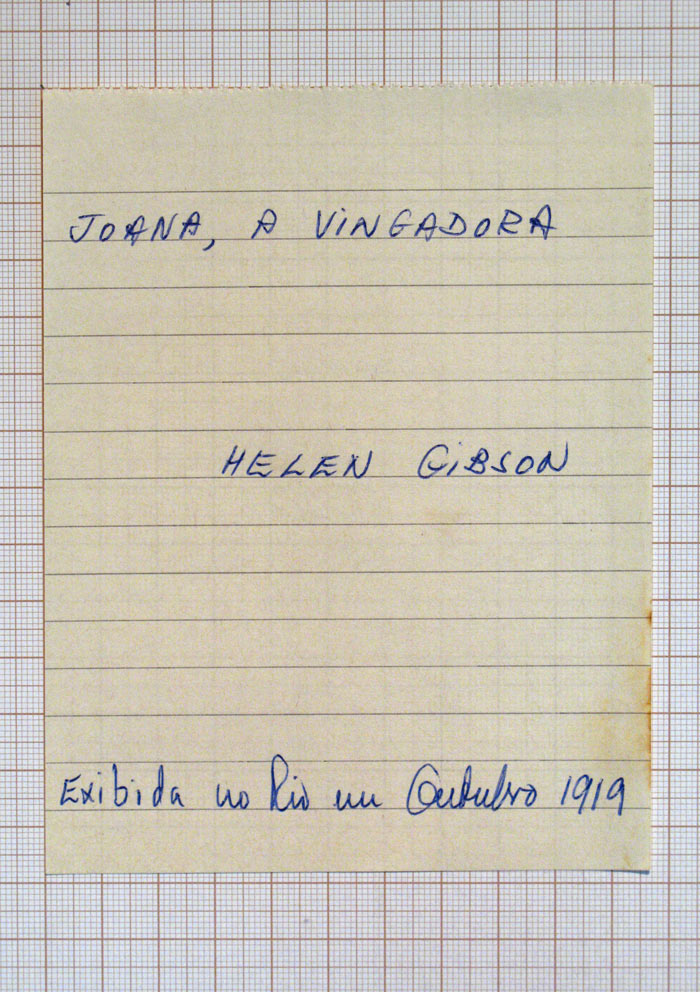 JOANA, A VINGADORA
HELEN GIBSON
Exibida no Rio em Outubro 1919